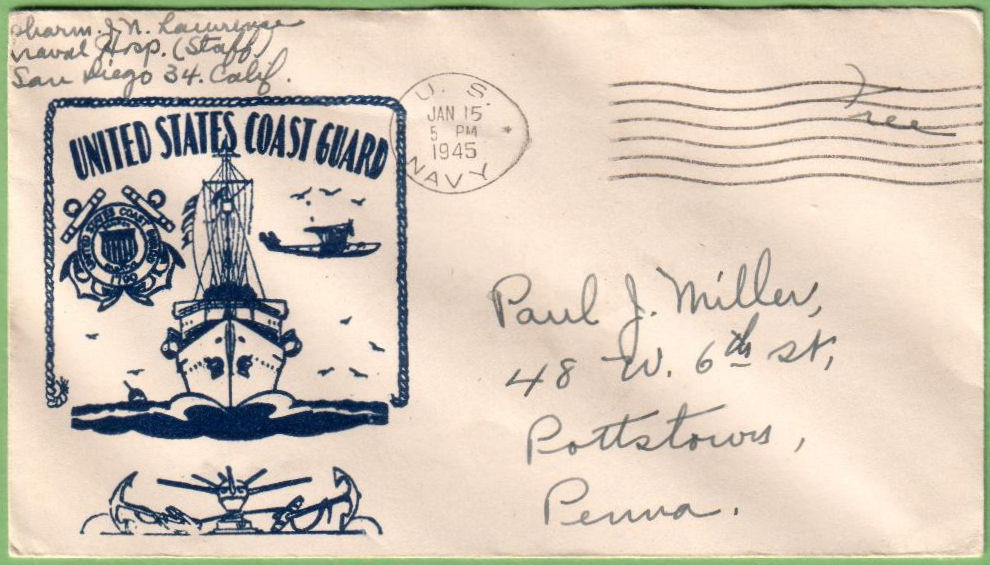 Pharm. J. N. Lawrence
Naval Hosp. (Staff)
San Diego 34. Calif.
UNITED STATES COAST GUARD
UNITED STATES COAST GUARD
1790
U. S.
JAN 15
5 PM
1945
NAVY
Free
Paul J. Miller,
48 W. 6th St,
Pottstown,
Penna.